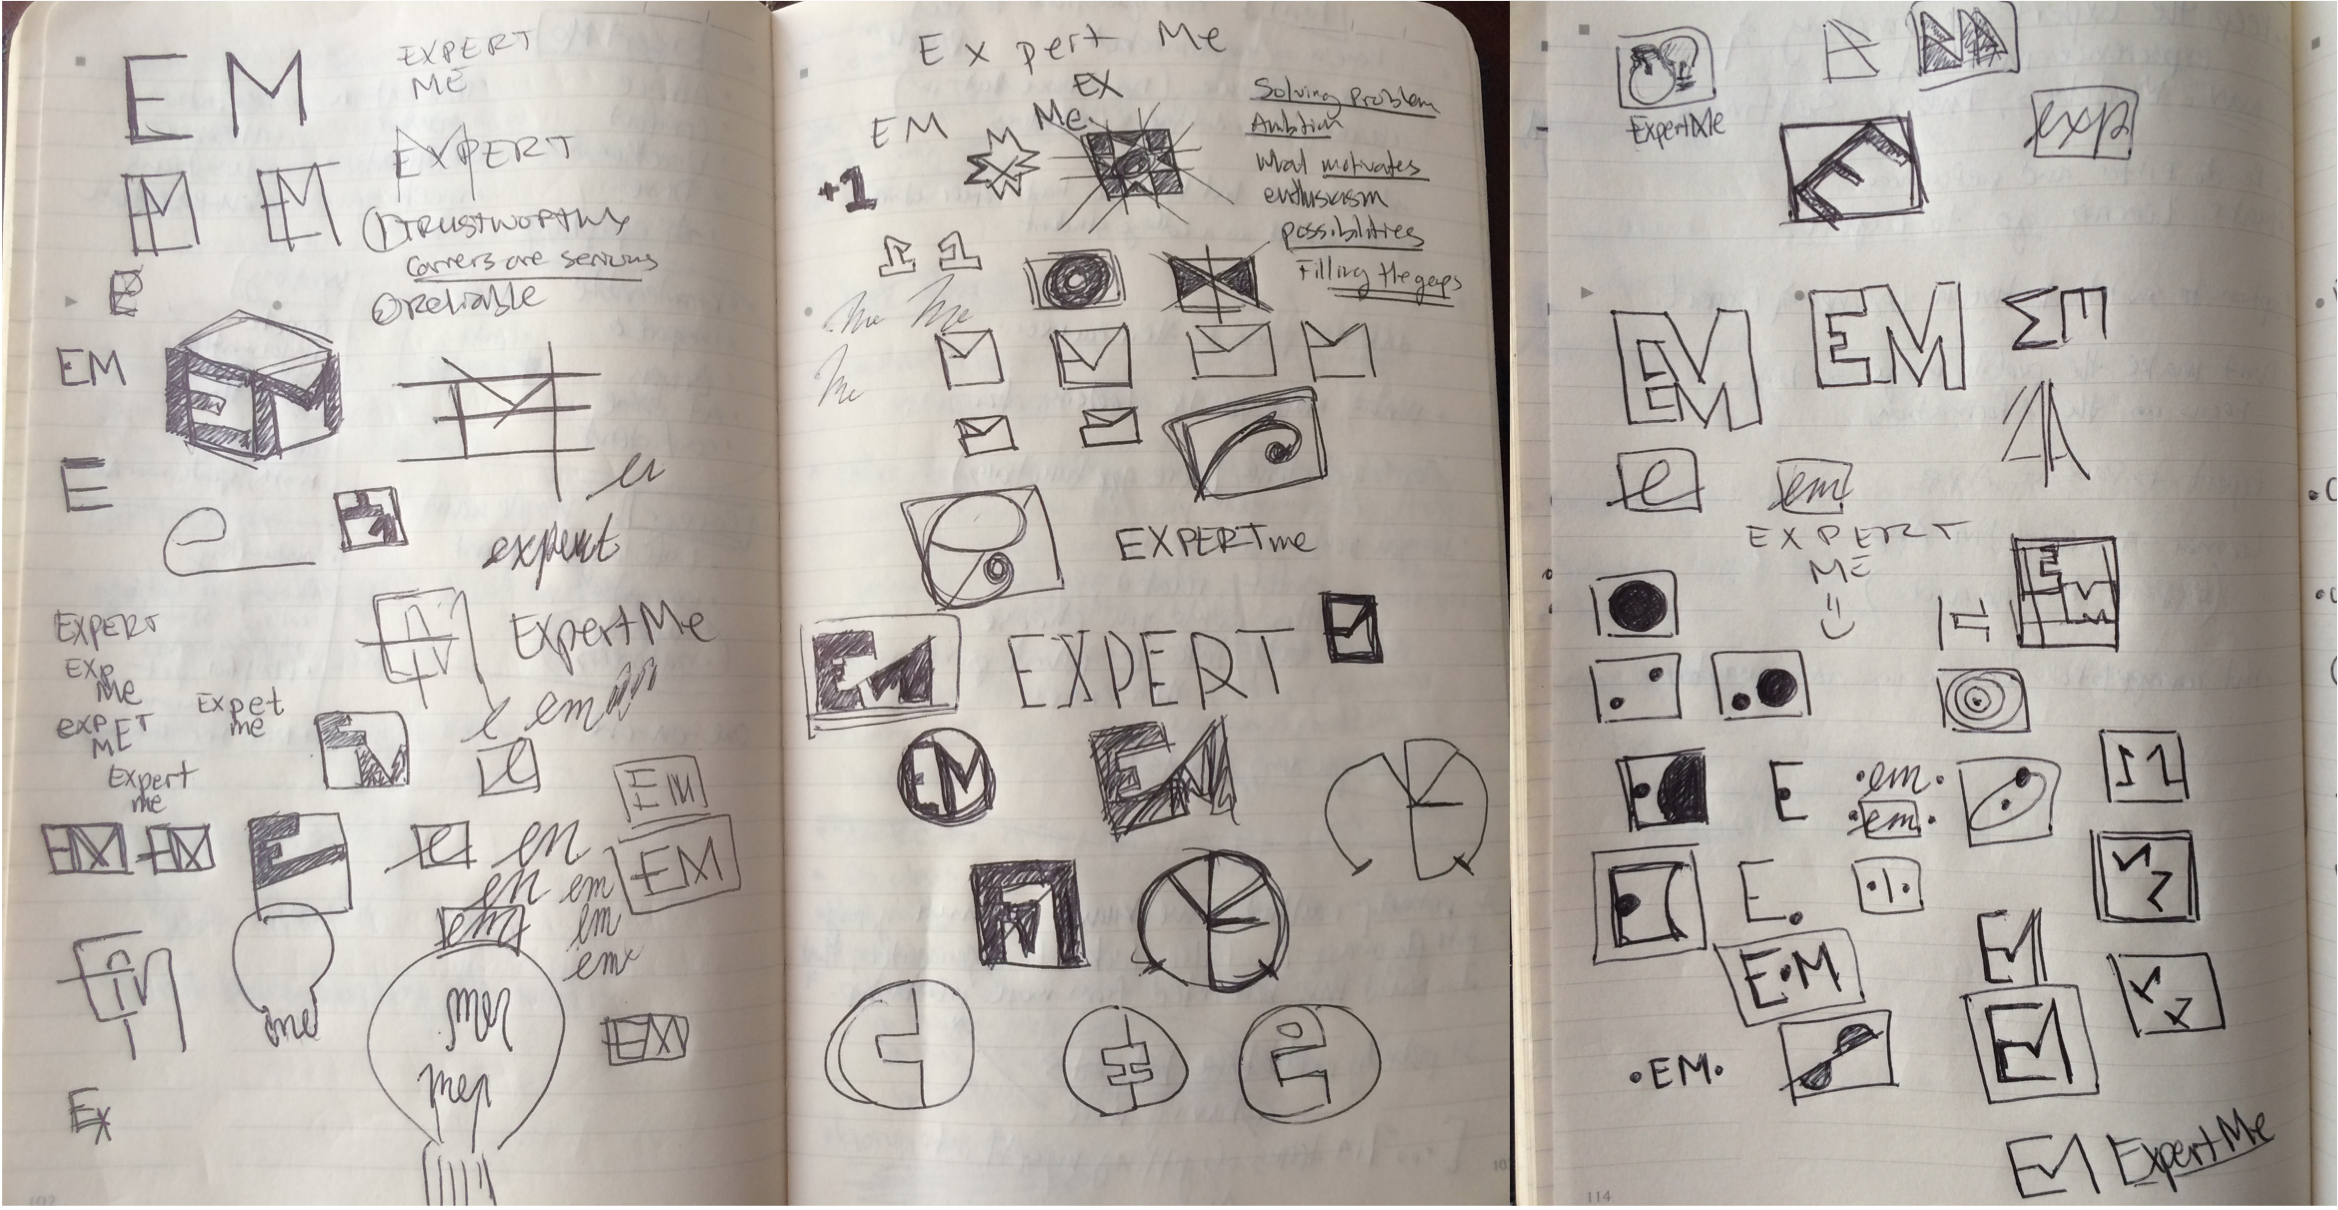 EM
EXPERT
ME
EXPERT
EM
EM
① TRUSTWORTHY
corners are serious
② Reliable
E
EM
EM
E
e
em
expert
EXPERT
EXP
Me
exPET
MET
Expert
me
Expet
me
ExpertMe
e em
e
EM
EM
EM
E
e
en
en
em
em
em
em
EM
me
EM
Ex
Expert Me
EX
Me
EM
+1
Solving Problem
Ambition
What motivates
enthusiasm
possibilities
Filling the gaps
1 1
me Me
Me
EXPERTme
EM
EXPERT
EM
EM
ExpertMe
exp
E
EM
EM
e
em
EXPERT
ME
E
M
E
•em•
•em•
E.
E•M
EM
•EM•
EM
EM ExpertMe
114